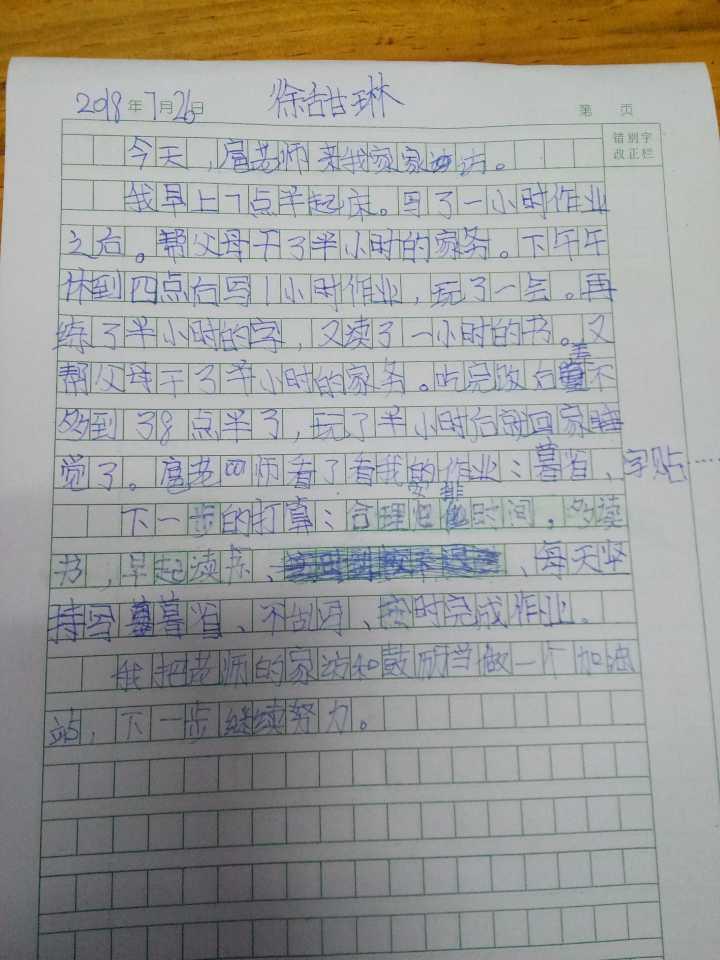 2018年7月26日 徐甜琳
第 页
错别字
改正栏
今天,扈老师来我家家访。
我早上7点半起床。写了一小时作业
之后。帮父母干了半小时的家务。下午午
休到四点后写1小时作业,玩了一会。再
练了半小时的字,又读了一小时的书。又
帮父母干了半小时的家务。吃完饭后差不
多到38点半了,玩了半小时后就回家睡
觉了。扈老师看了看我的作业:暮省、字贴……
下一步的打算:合理安排时间,多读
书,早起读书、、每天坚
持写暮省、不出门、按时完成作业。
我把老师的家访和鼓励当做一个加油
站,下一步继续努力。